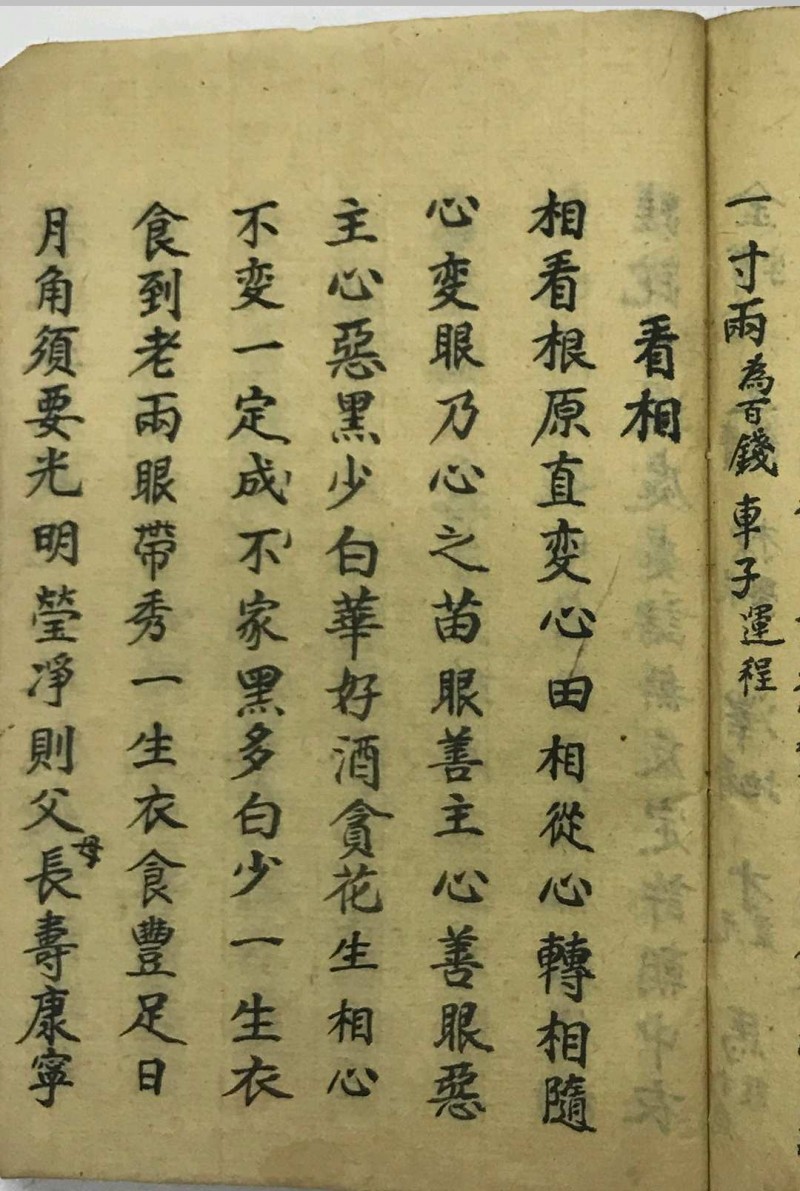 一寸兩為百錢 車子運程
看相
相看根原直変心田相從心轉相隨
心変眼乃心之苗眼善主心善眼惡
主心惡黑少白華好酒貪花生相心
不変一定成不家黑多白少一生衣
食到老兩眼帶秀一生衣食豐足日
月角須要光明瑩淨則父母長壽康寧